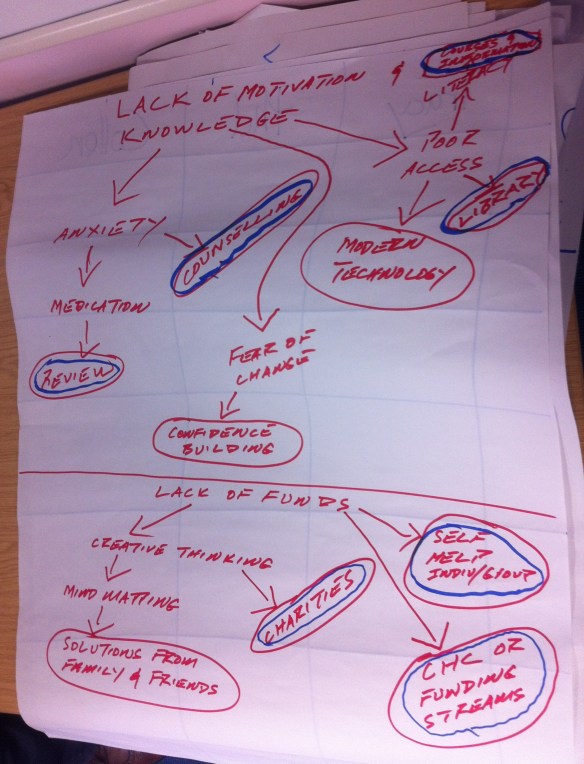 LACK OF MOTIVATION &
KNOWLEDGE
COURSES &
INFORMATION
LITERACY
POOR
ACCESS
LIBRARY
MODERN
TECHNOLOGY
ANXIETY
COUNSELLING
MEDICATION
REVIEW
FEAR OF
CHANGE
CONFIDENCE
BUILDING
LACK OF FUNDS
CREATIVE THINKING
MIND MAPPING
SOLUTIONS FROM
FAMILY & FRIENDS
CHARITIES
SELF
HELP
INDIV/GROUP
CHC OR
FUNDING
STREAMS